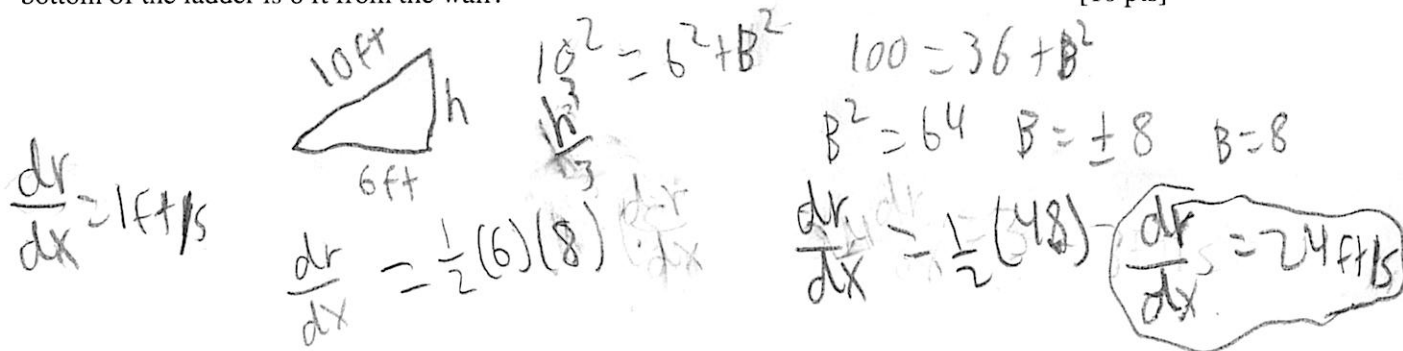 bottom of the ladder is 6 ft from the wall?
10ft
h
6ft
10² = 6² + B²
100 = 36 + B²
B² = 64 B = ±8 B = 8
dr/dx = 1ft/s
dr/dx = ½(6)(8)
dr/dx = ½(48)
dr/dx = 24ft/s